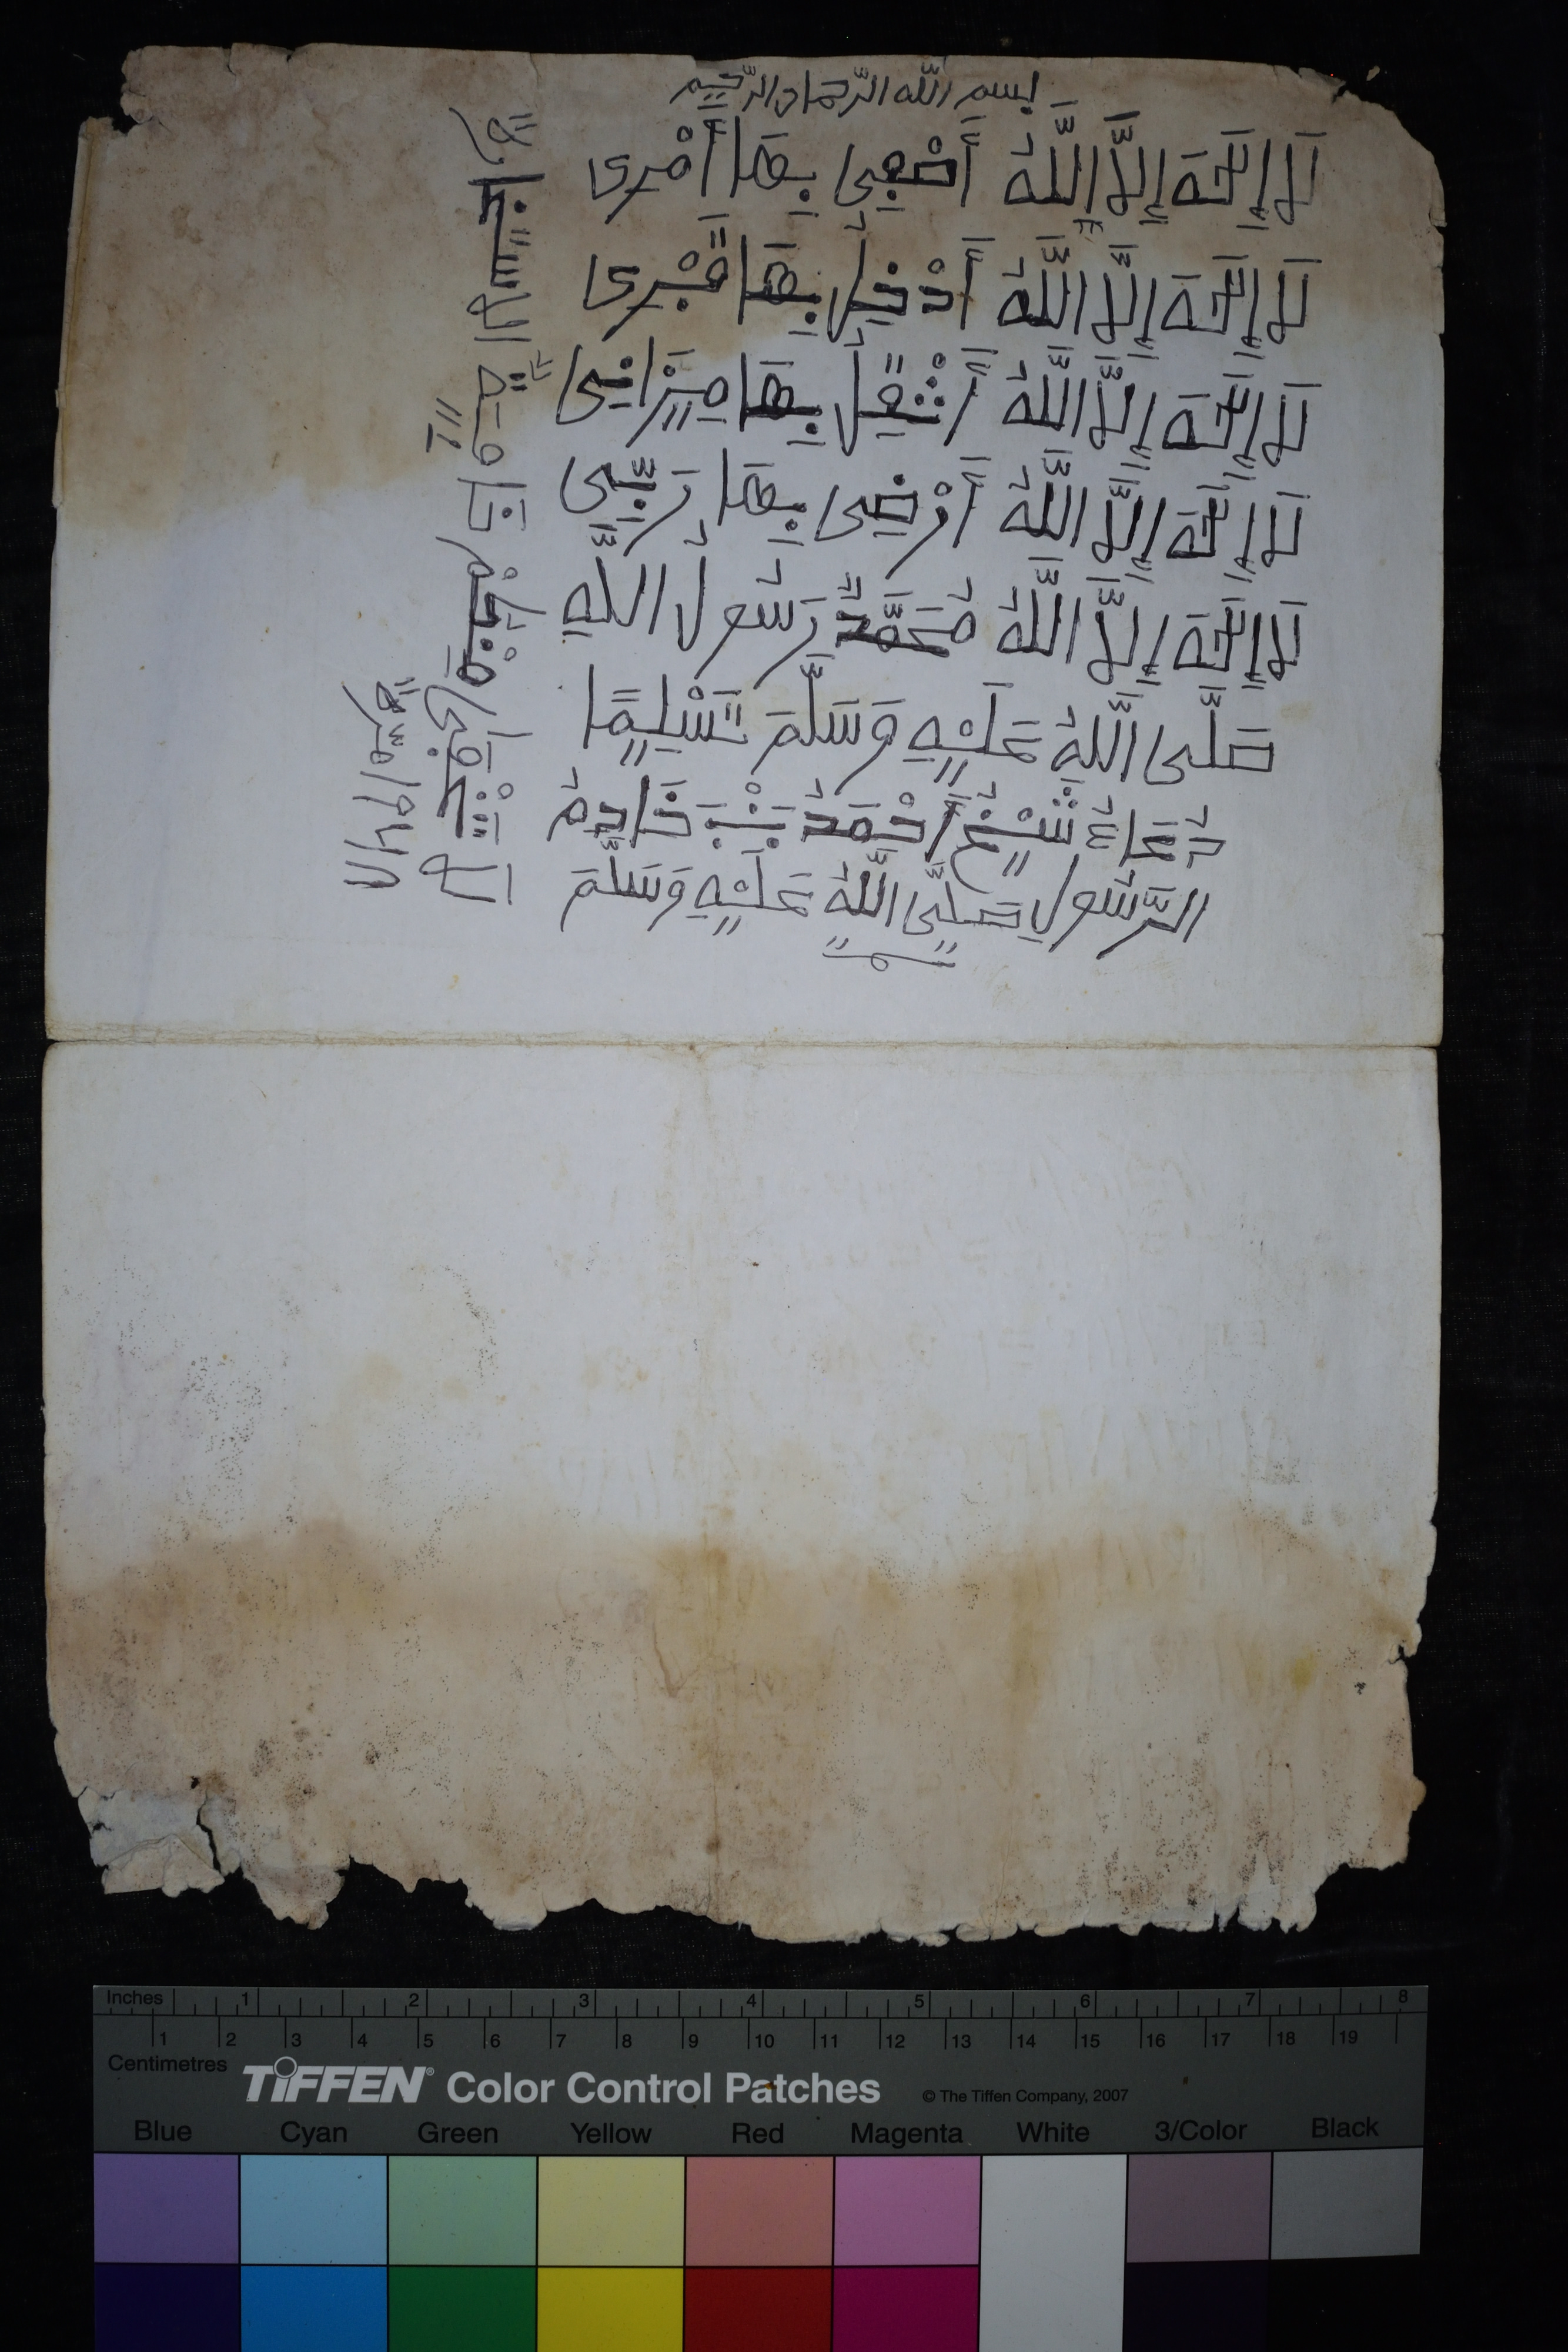 بسم الله الرّحمان الرّحيم
لَا إِلَٰهَ إِلَّا اللَّهُ أَصْعِى بِهَا أَمْرِى
لَا إِلَٰهَ إِلَّا اللَّهُ أَدْخِلُ بِهَا قَبْرِى
لَا إِلَٰهَ إِلَّا اللَّهُ أَثْقِلُ بِهَا مِيزَانِى
لَا إِلَٰهَ إِلَّا اللَّهُ أَرْضِى بِهَا رَبِّى
لَا إِلَٰهَ إِلَّا اللَّهُ مُحَمَّدٌ رَسُولُ اللَّهِ
صَلَّى اللَّهُ عَلَيْهِ وَسَلَّمَ تَسْلِيمًا
دُعَاءُ شَيْخُ أَحْمَدُ بَنْبَ خَادِمُ
الرَّسُولِ صَلَّى اللَّهُ عَلَيْهِ وَسَلَّمَ
Inches 1 2 3 4 5 6 7 8
1 2 3 4 5 6 7 8 9 10 11 12 13 14 15 16 17 18 19
Centimetres
TIFFEN® Color Control Patches © The Tiffen Company, 2007
Blue Cyan Green Yellow Red Magenta White 3/Color Black